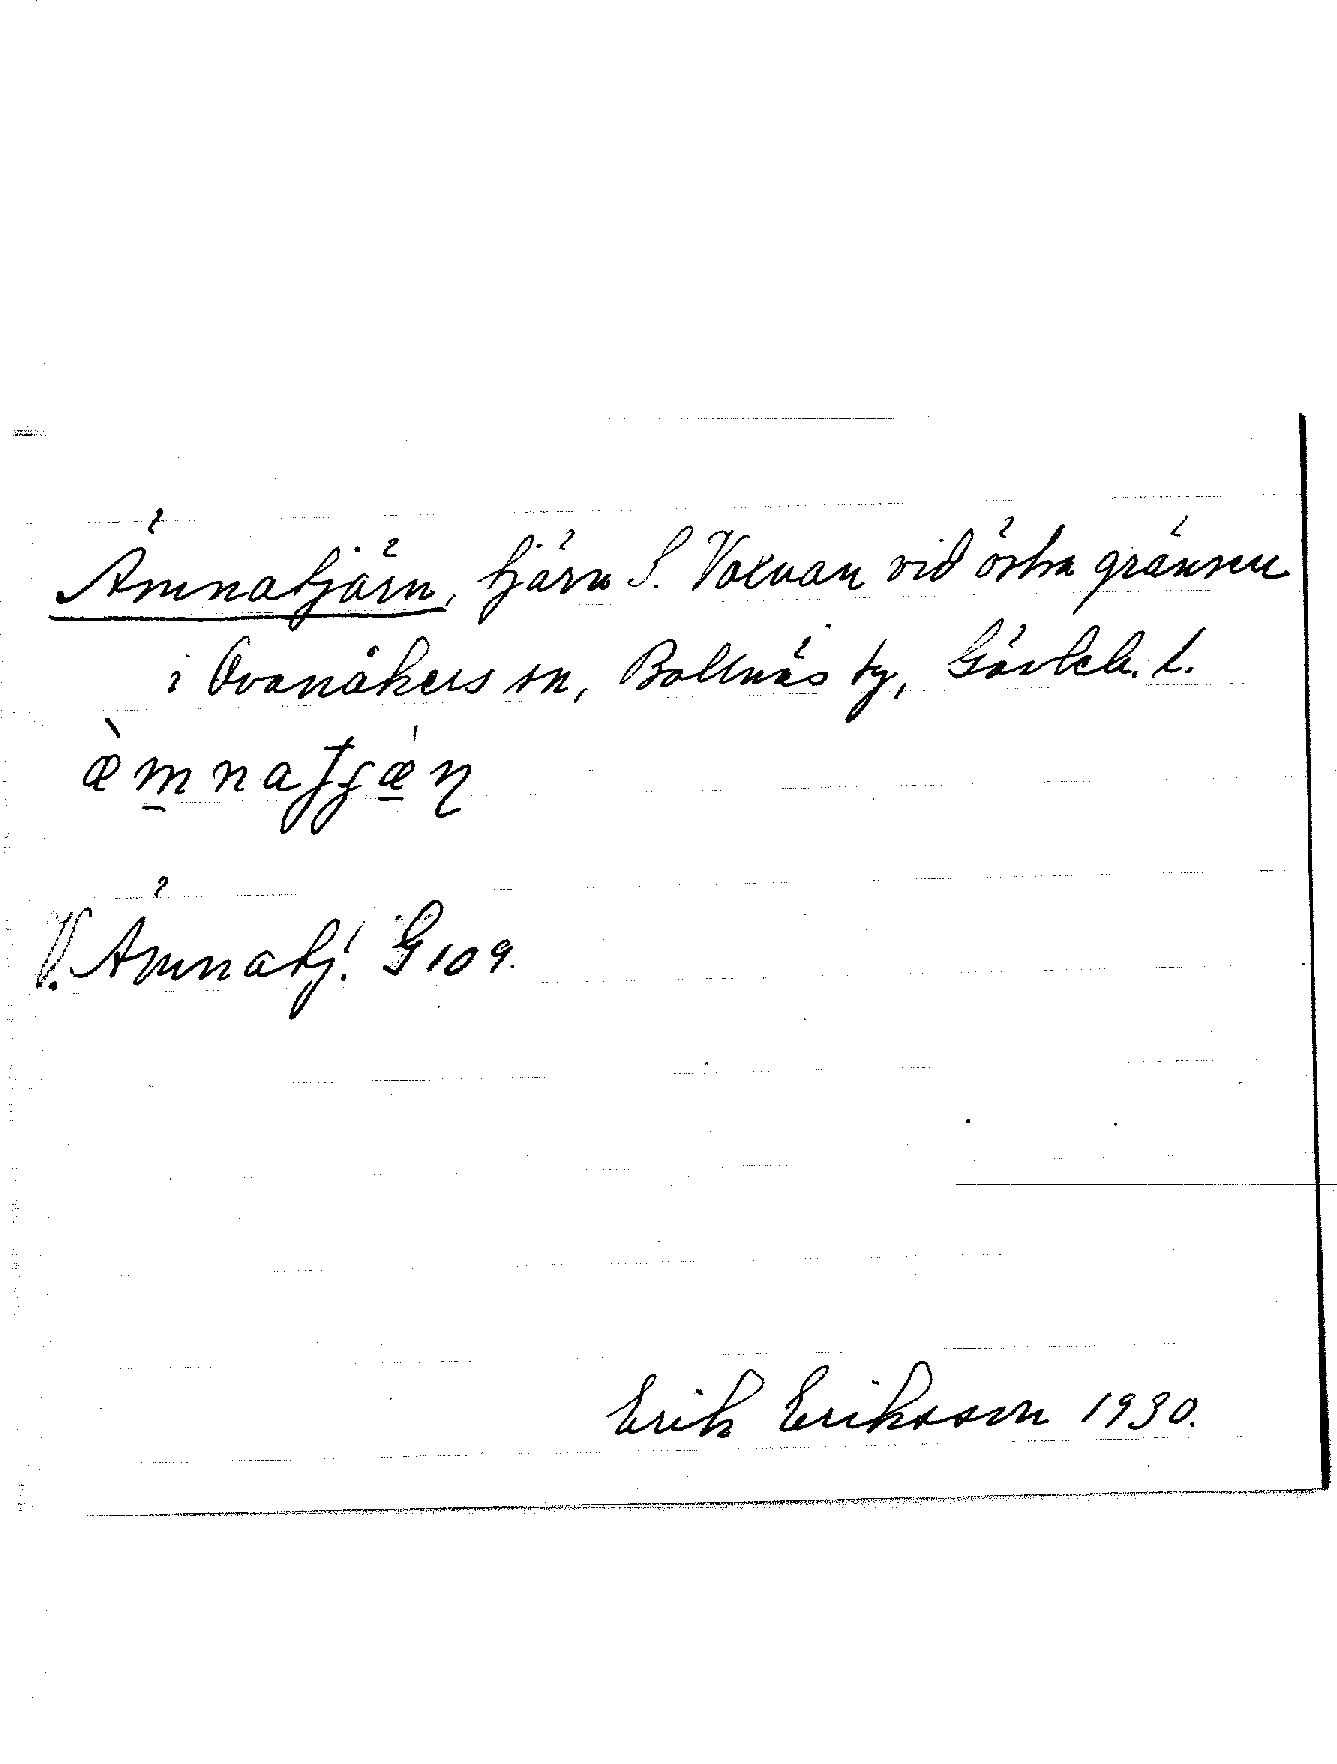 Ämnatjärn, tjärn S. Voxnan vid östra gränsen
i Ovanåkers sn, Bollnäs tg, Gävleb. l.
æ̀m̲natjæ̲̀ɳ
V. Ämnatj. G 109.
Erik Eriksson 1930.